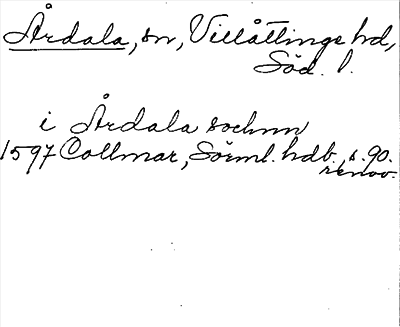 Årdala, sn, Villåttinge hd,
Söd. l.
i Årdala socknn
1597 Collmar, Sörml. hdb., s. 90.
renov.